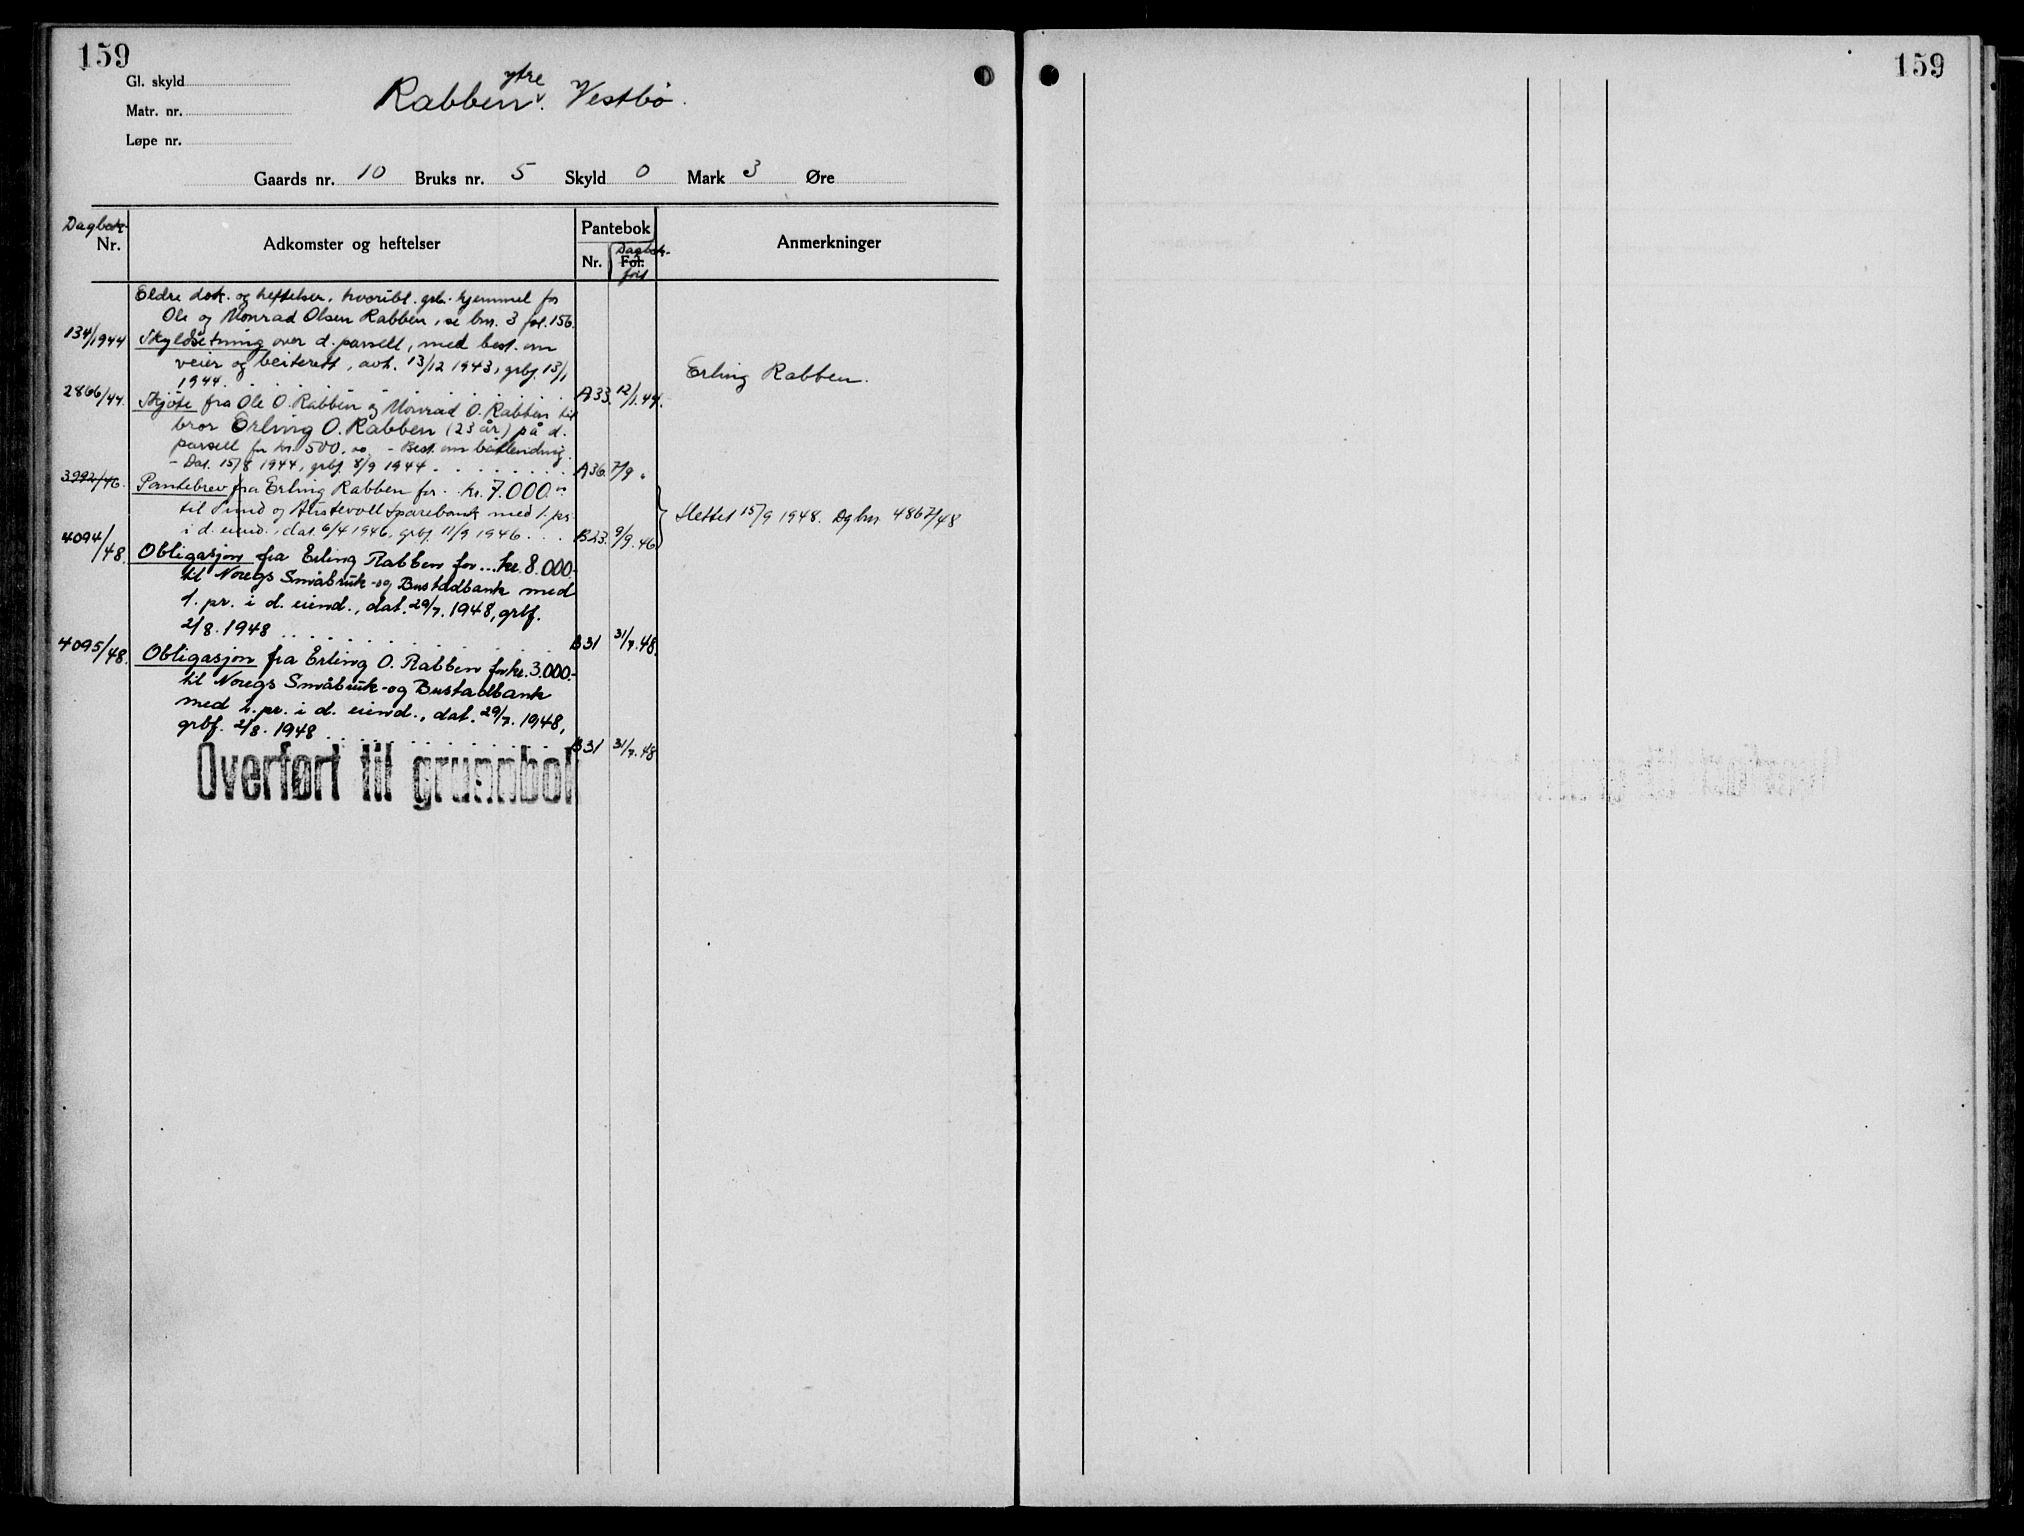 159
Gl. skyld
Matr. nr.
Løpe nr.
Rabben ytre v. Vestbø.
Gaards nr. 10 Bruks nr. 5 Skyld 0 Mark 3 Øre
Dagbok Nr.
Adkomster og heftelser
Pantebok
Nr. Fol. Dagbok-ført
Anmerkninger
Eldre dok. og heftelser, hvoribl. grb. hjemmel for
Ole og Monrad Olsen Rabben, se bnr. 3 fol. 156.
134/1944 Skyldsetning over d. parsell, med best. om
veier og beiterett, avh. 13/12 1943, grbf. 13/1
1944. A33. 12/1.44.
Erling Rabben.
2866/44. Skjøte fra Ole O. Rabben og Monrad O. Rabben til
bror Erling O. Rabben (23 år) på d.
parsell for kr. 500.00 - Best. om
- Dat. 15/8 1944, grbf 8/9 1944. A36. 7/9 "
3992/46. Pantebrev fra Erling Rabben for kr. 7.000.00
til Sund og Austevoll Sparebank med 1. pr.
i d. eiend., dat. 6/4 1946, grbf. 11/9 1946 B23. 9/9.46
Slettet 15/9 1948. Dgbnr. 4867/48
4094/48. Obligasjon fra Erling Rabben for... kr. 8.000.-
til Noregs Småbruk- og Bustadbank med
1. pr. i d. eiend., dat. 29/7. 1948, grbf.
2/8. 1948 B31 31/7.48.
4095/48. Obligasjon fra Erling O. Rabben for kr. 3.000.-
til Noregs Småbruk- og Bustadbank
med 2. pr. i d. eiend., dat. 29/7. 1948,
grbf. 2/8. 1948 B31 31/7.48
Overført til grunnbok
159